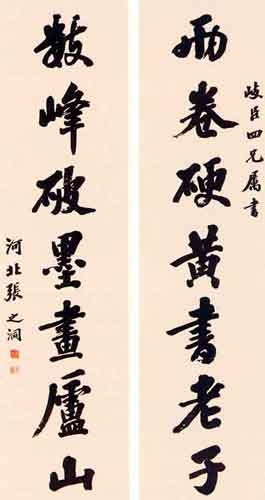 岐臣四兄属书
两卷硬黄書老子
數峰破墨畫廬山
河北張之洞